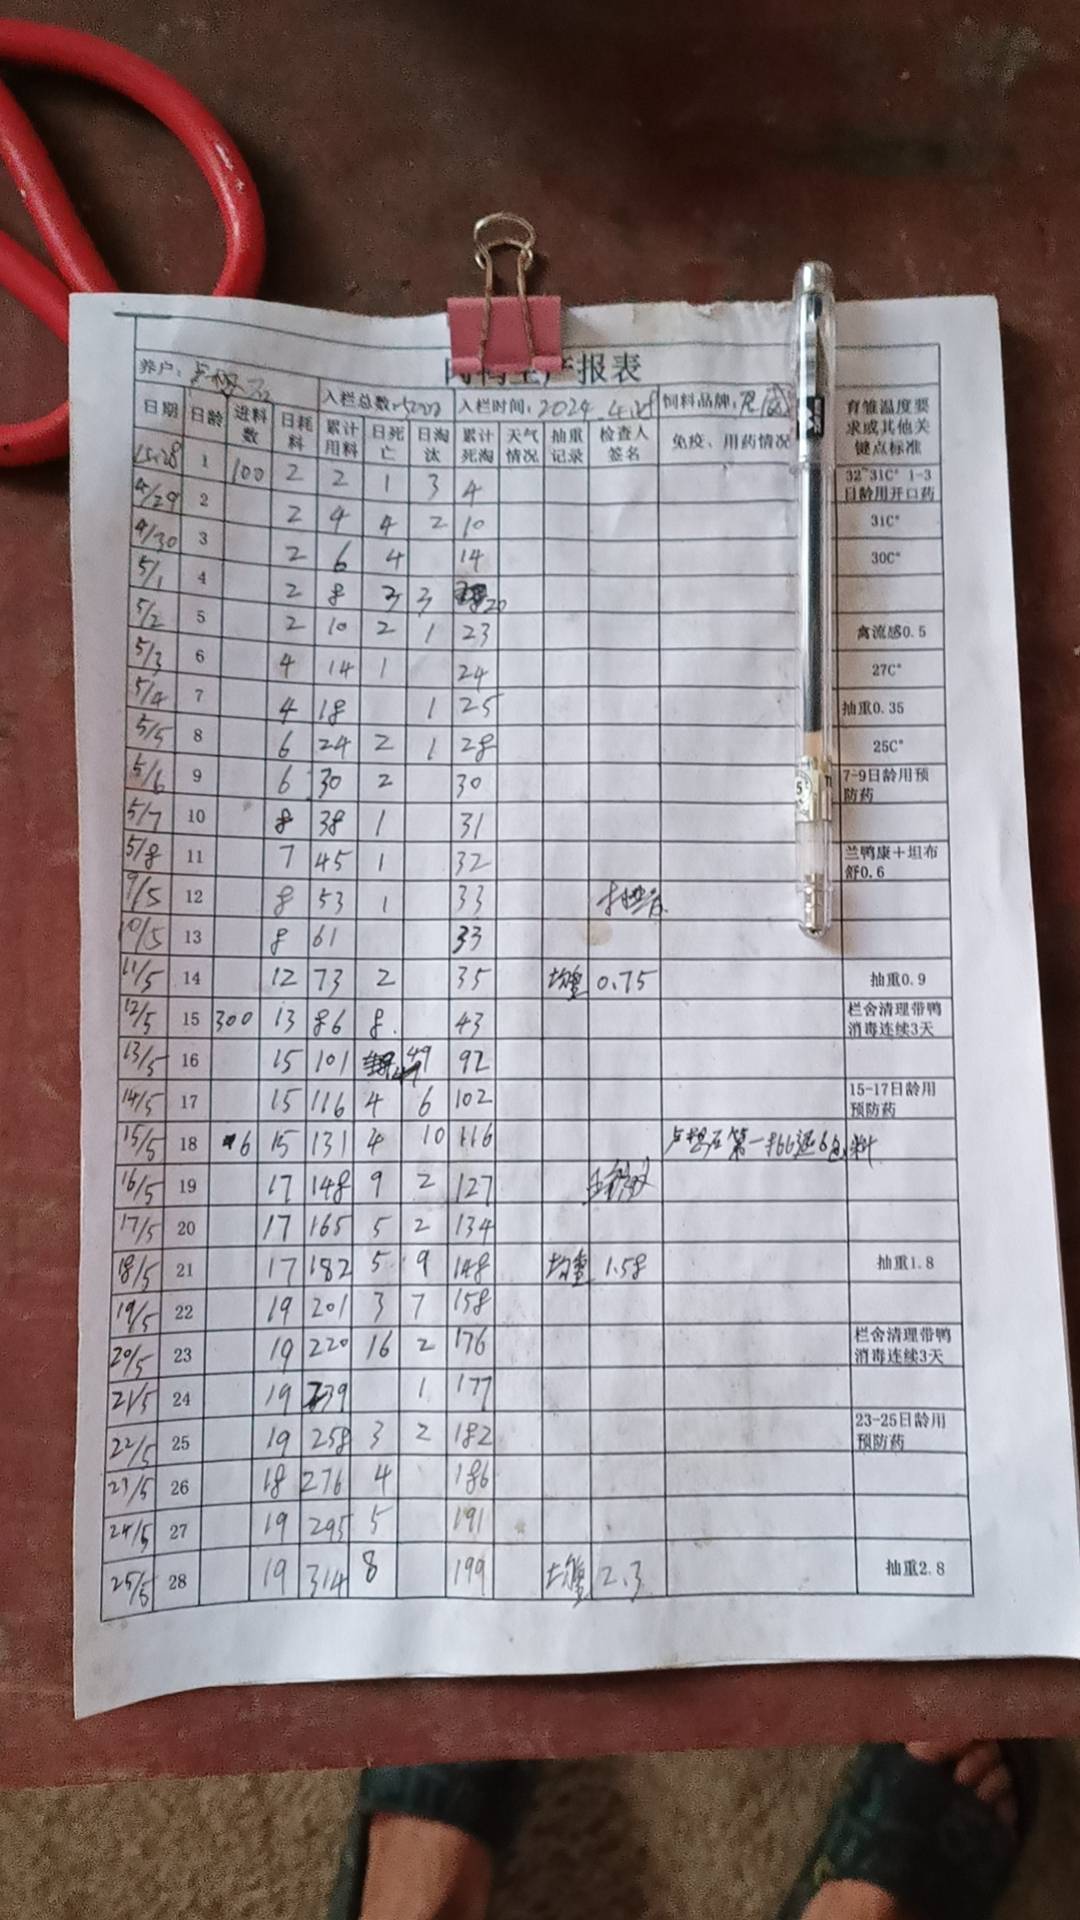 产报表
养户：
入栏总数： 入栏时间：2024 4.28 饲料品牌：
日期 日龄 进料数 日耗料 累计用料 日死亡 日淘汰 累计死淘 天气情况 抽重记录 检查人签名 免疫、用药情况 育雏温度要求或其他关键点标准
1 100 2 2 1 3 4 32~31C° 1-3日龄用开口药
4/29 2 2 4 4 2 10 31C°
4/30 3 2 6 4 14 30C°
5/1 4 2 8 3 3 20
5/2 5 2 10 2 1 23 禽流感0.5
5/3 6 4 14 1 24 27C°
5/4 7 4 18 1 25 抽重0.35
5/5 8 6 24 2 1 28 25C°
5/6 9 6 30 2 30 7-9日龄用预防药
5/7 10 8 38 1 31
5/8 11 7 45 1 32 兰鸭康＋坦布舒0.6
9/5 12 8 53 1 33
10/5 13 8 61 33
11/5 14 12 73 2 35 均重 0.75 抽重0.9
12/5 15 300 13 86 8 43 栏舍清理带鸭消毒连续3天
13/5 16 15 101 49 92
14/5 17 15 116 4 6 102 15-17日龄用预防药
15/5 18 6 15 131 4 10 116 第一批退6包料
16/5 19 17 148 9 2 127
17/5 20 17 165 5 2 134
18/5 21 17 182 5 9 148 均重 1.58 抽重1.8
19/5 22 19 201 3 7 158
20/5 23 19 220 16 2 176 栏舍清理带鸭消毒连续3天
21/5 24 19 239 1 177
22/5 25 19 258 3 2 182 23-25日龄用预防药
23/5 26 18 276 4 186
24/5 27 19 295 5 191
25/5 28 19 314 8 199 均重 2.3 抽重2.8